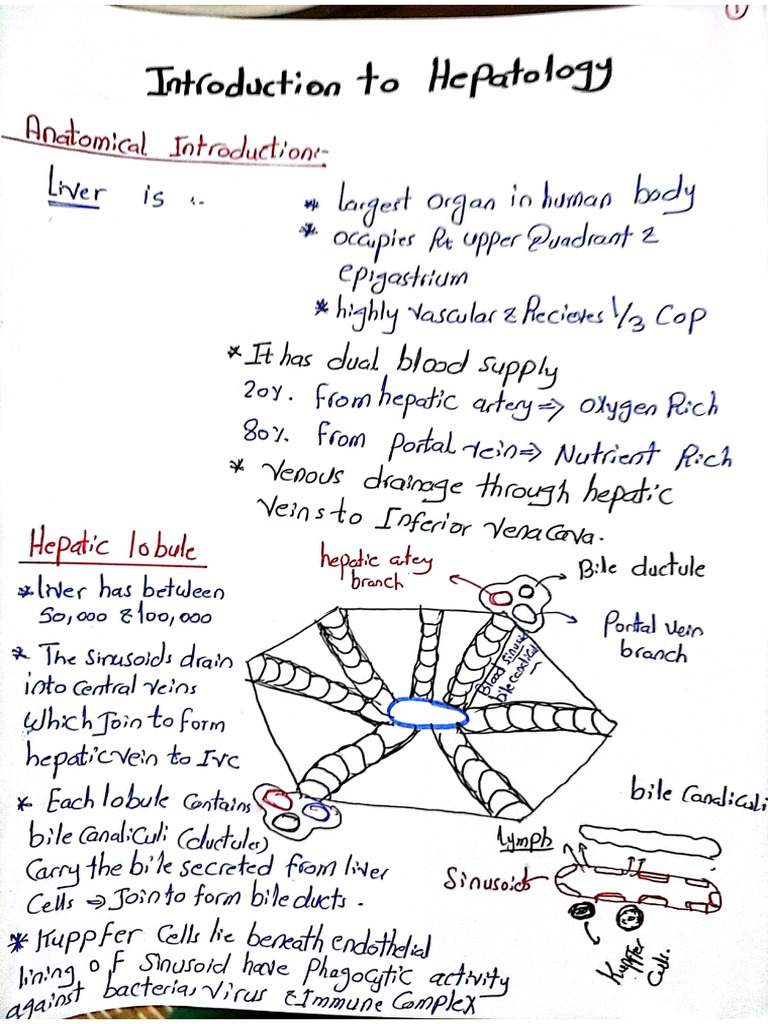 1
Introduction to Hepatology
Anatomical Introduction:-
Liver is :-
* largest organ in human body
* occupies Rt upper Quadrant &
epigastrium
* highly vascular & Recieves 1/3 COP
* It has dual blood supply
20%. from hepatic artery => oxygen Rich
80%. from portal vein => Nutrient Rich
* venous drainage through hepatic
veins to Inferior vena Cava.
Hepatic lobule
* liver has between
50,000 & 100,000
* The sinusoids drain
into central veins
which Join to form
hepatic vein to IVC
* Each lobule contains
bile Canaliculi (ductules)
Carry the bile secreted from liver
cells => Join to form bile ducts.
* Kuppfer Cells lie beneath endothelial
lining of sinusoid have phagocytic activity
against bacterias, virus & Immune Complex
hepatic artey
branch
Bile ductule
Portal vein
branch
Blood sinus
bile canaliculi
bile Canaliculi
lymph
Sinusoids
Kuppfer
Cells.